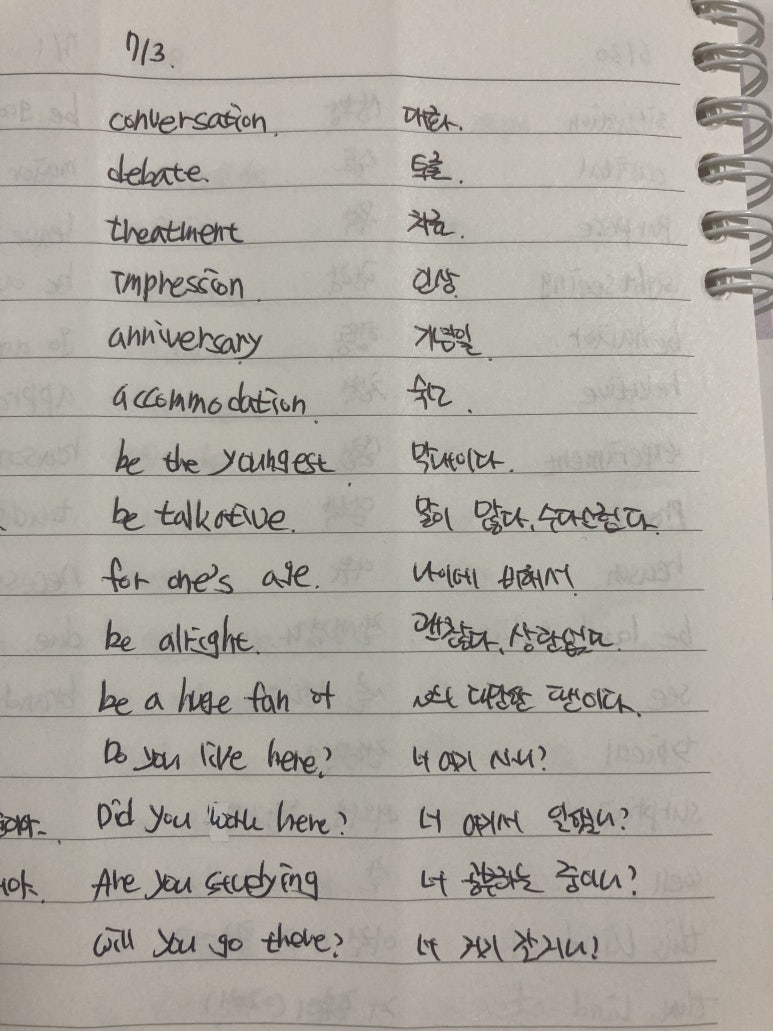 7/3.
conversation. 대화.
debate. 토론.
theatment 치료.
Impression. 인상.
anniversary 기념일.
accommodation. 숙소.
be the youngest. 막내이다.
be talkative. 말이 많다, 수다스럽다.
for one's age. 나이에 비해서.
be alright. 괜찮다, 상관없다.
be a huge fan of ~의 대단한 팬이다.
Do you live here? 너 여기 사니?
Did you work here? 너 여기서 일했니?
Are you studying 너 공부하는 중이니?
will you go there? 너 거기 갈거니?